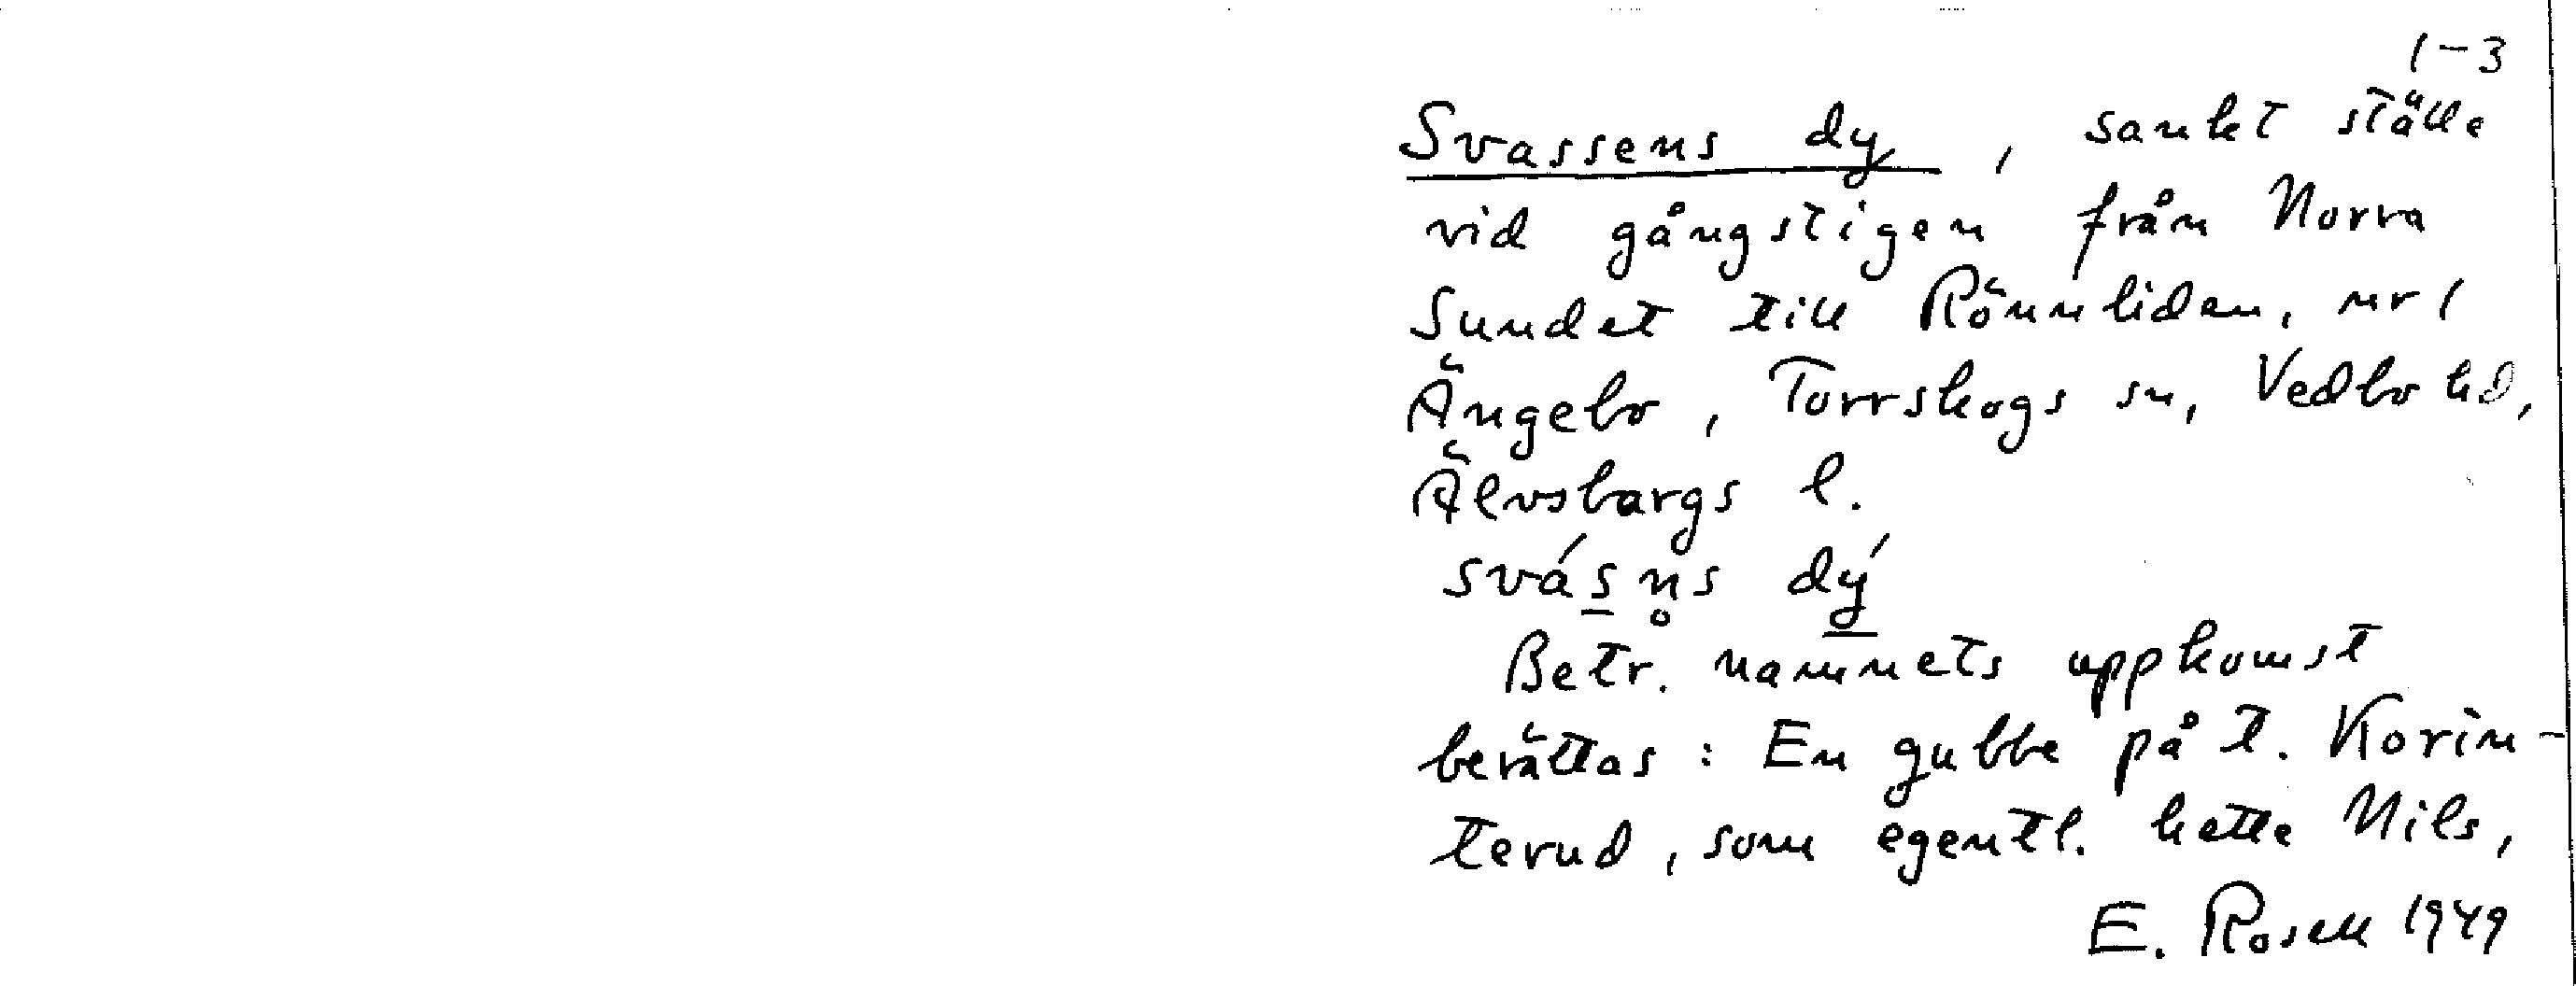 1-3
Svassens dy, sankt ställe
vid gångstigen från Norra
Sundet till Rönnliden, nr 1
Ängebo, Torrskogs sn, Vedbo hd,
Älvsborgs l.
svás̲n̥s dý̲
Betr. namnets uppkomst
berättas: En gubbe på t. Korin-
terud, som egentl. hette Nils,
E. Rosell 1949